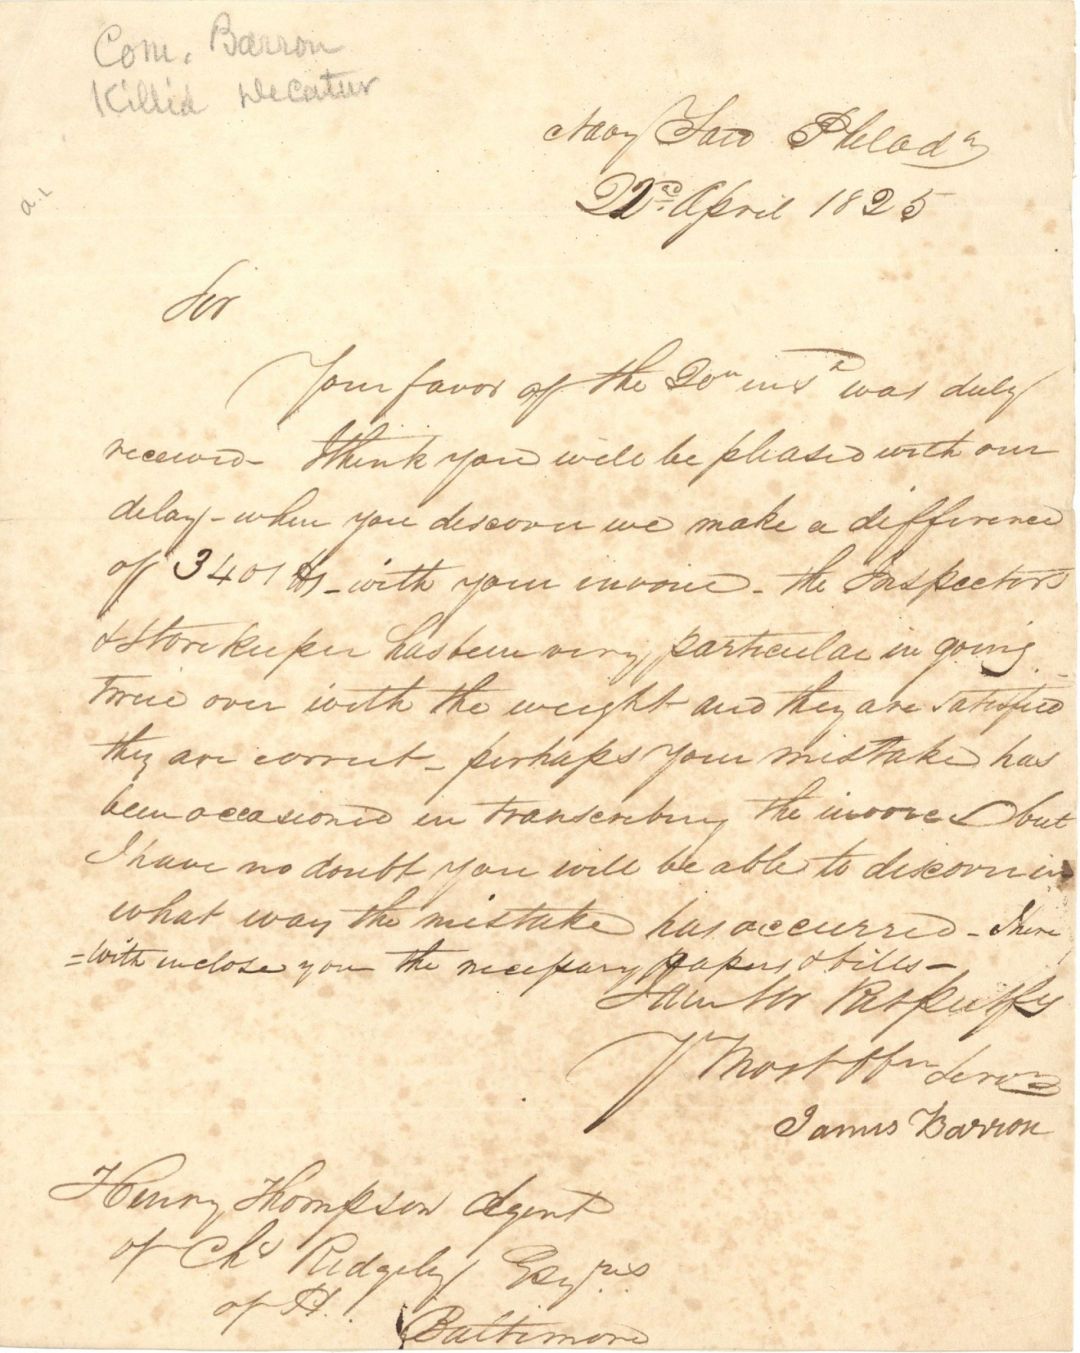 Com. Barron
Killed Decatur
a.l
Navy Yard Philad^a
22nd April 1825
Sir
Your favor of the 20th inst was duly
received - I think you will be pleased with our
delay - when you discover we make a difference
of 3401 lbs - with your invoice - the Inspectors
& Storekeeper has been very particular in going
twice over with the weight and they are satisfied
they are correct - perhaps your mistake has
been occasioned in transcribing the invoice but
I have no doubt you will be able to discover in
what way the mistake has occurred - I here
=with inclose you the necessary papers & bills -
I am Sir Respectfy
Yr Most Obn Servn
James Barron
Henry Thompson Agent
of Chs Ridgely Esqres
of H.
Baltimore